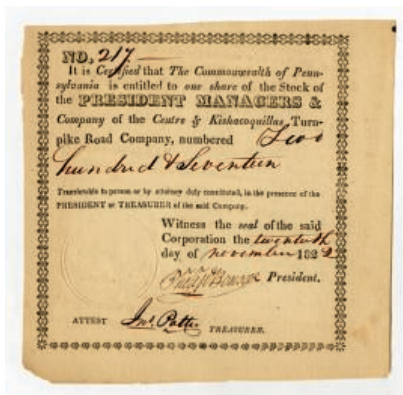 NO. 217
It is Certified that The Commonwealth of Penn-
sylvania is entitled to one share of the Stock of
the PRESIDENT MANAGERS &
Company of the Centre & Kishacoquillas Turn-
pike Road Company, numbered Two
hundred & Seventeen
Transferable in person or by attorney duly constituted, in the presence of the
PRESIDENT or TREASURER of the said Company.
Witness the seal of the said
Corporation the twentieth
day of november 1822
President.
ATTEST Jno. Potter TREASURER.